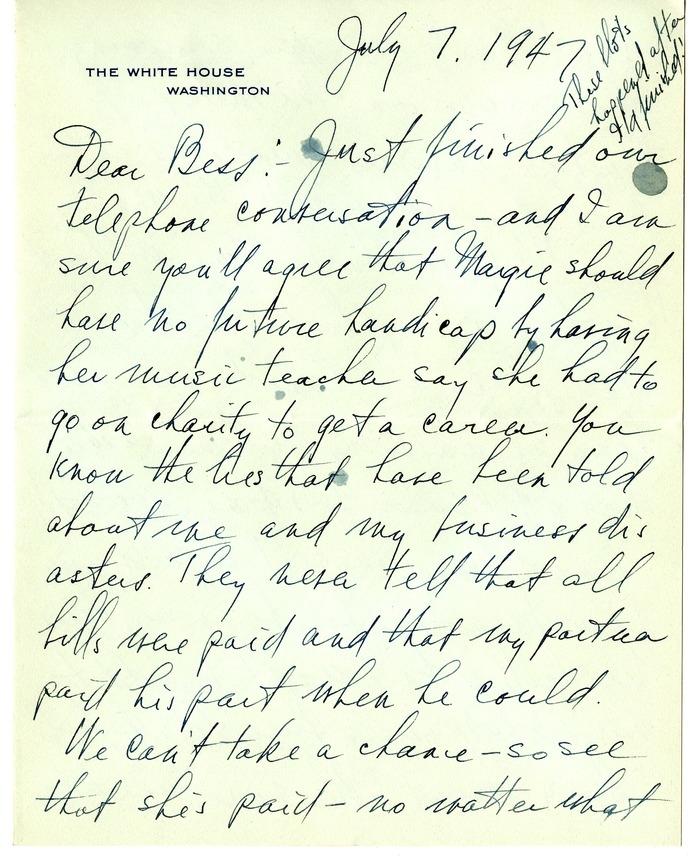 THE WHITE HOUSE
WASHINGTON
July 7, 1947
These blots
happened after
I'd finished!
Dear Bess:- Just finished our
telephone conversation - and I am
sure you'll agree that Margie should
have no future handicap by having
her music teacher say she had to
go on charity to get a career. You
know the lies that have been told
about me and my business dis
asters. They never tell that all
bills were paid and that my partner
paid his part when he could.
We can't take a chance - so see
that she's paid - no matter what